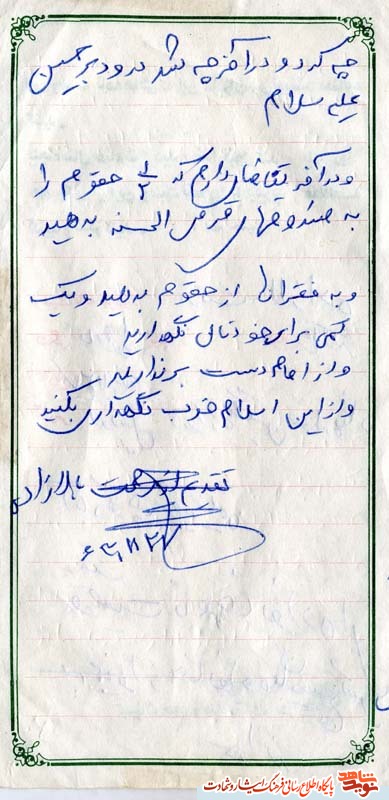 چه کرد و در آخر چه شد درود بر حسین
علیه سلام
و در آخر تقاضای دارم که ۱/۲ حقوقم را
به صندوقهای قرض الحسنه بدهید
و به فقرا از حقوقم بدهید و یک
کمی برای خودتان نگهدارید
و از امام دست برندارید
و از این اسلام خوب نگهداری بکنید
تقدیم
نوید شاهد
پایگاه اطلاع رسانی فرهنگ ایثار و شهادت